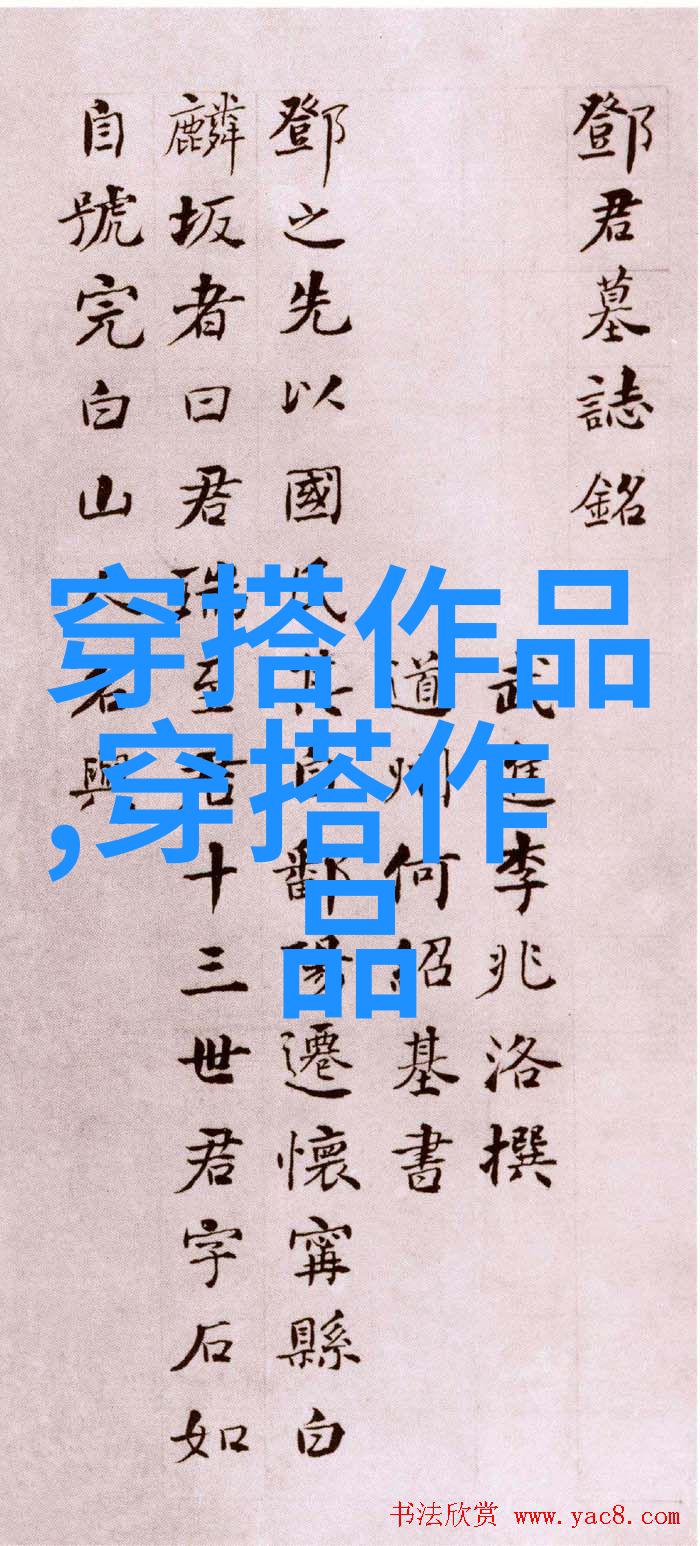 鄧君墓誌銘
武進李兆洛撰
道州何紹基書
鄧之先以國氏其自鄱陽遷懷寗縣白
麟坂者曰君瑞至君十三世君字石如
自號完白山人名與
穿搭作品
,穿搭作
品
书法欣赏 www.yac8.com